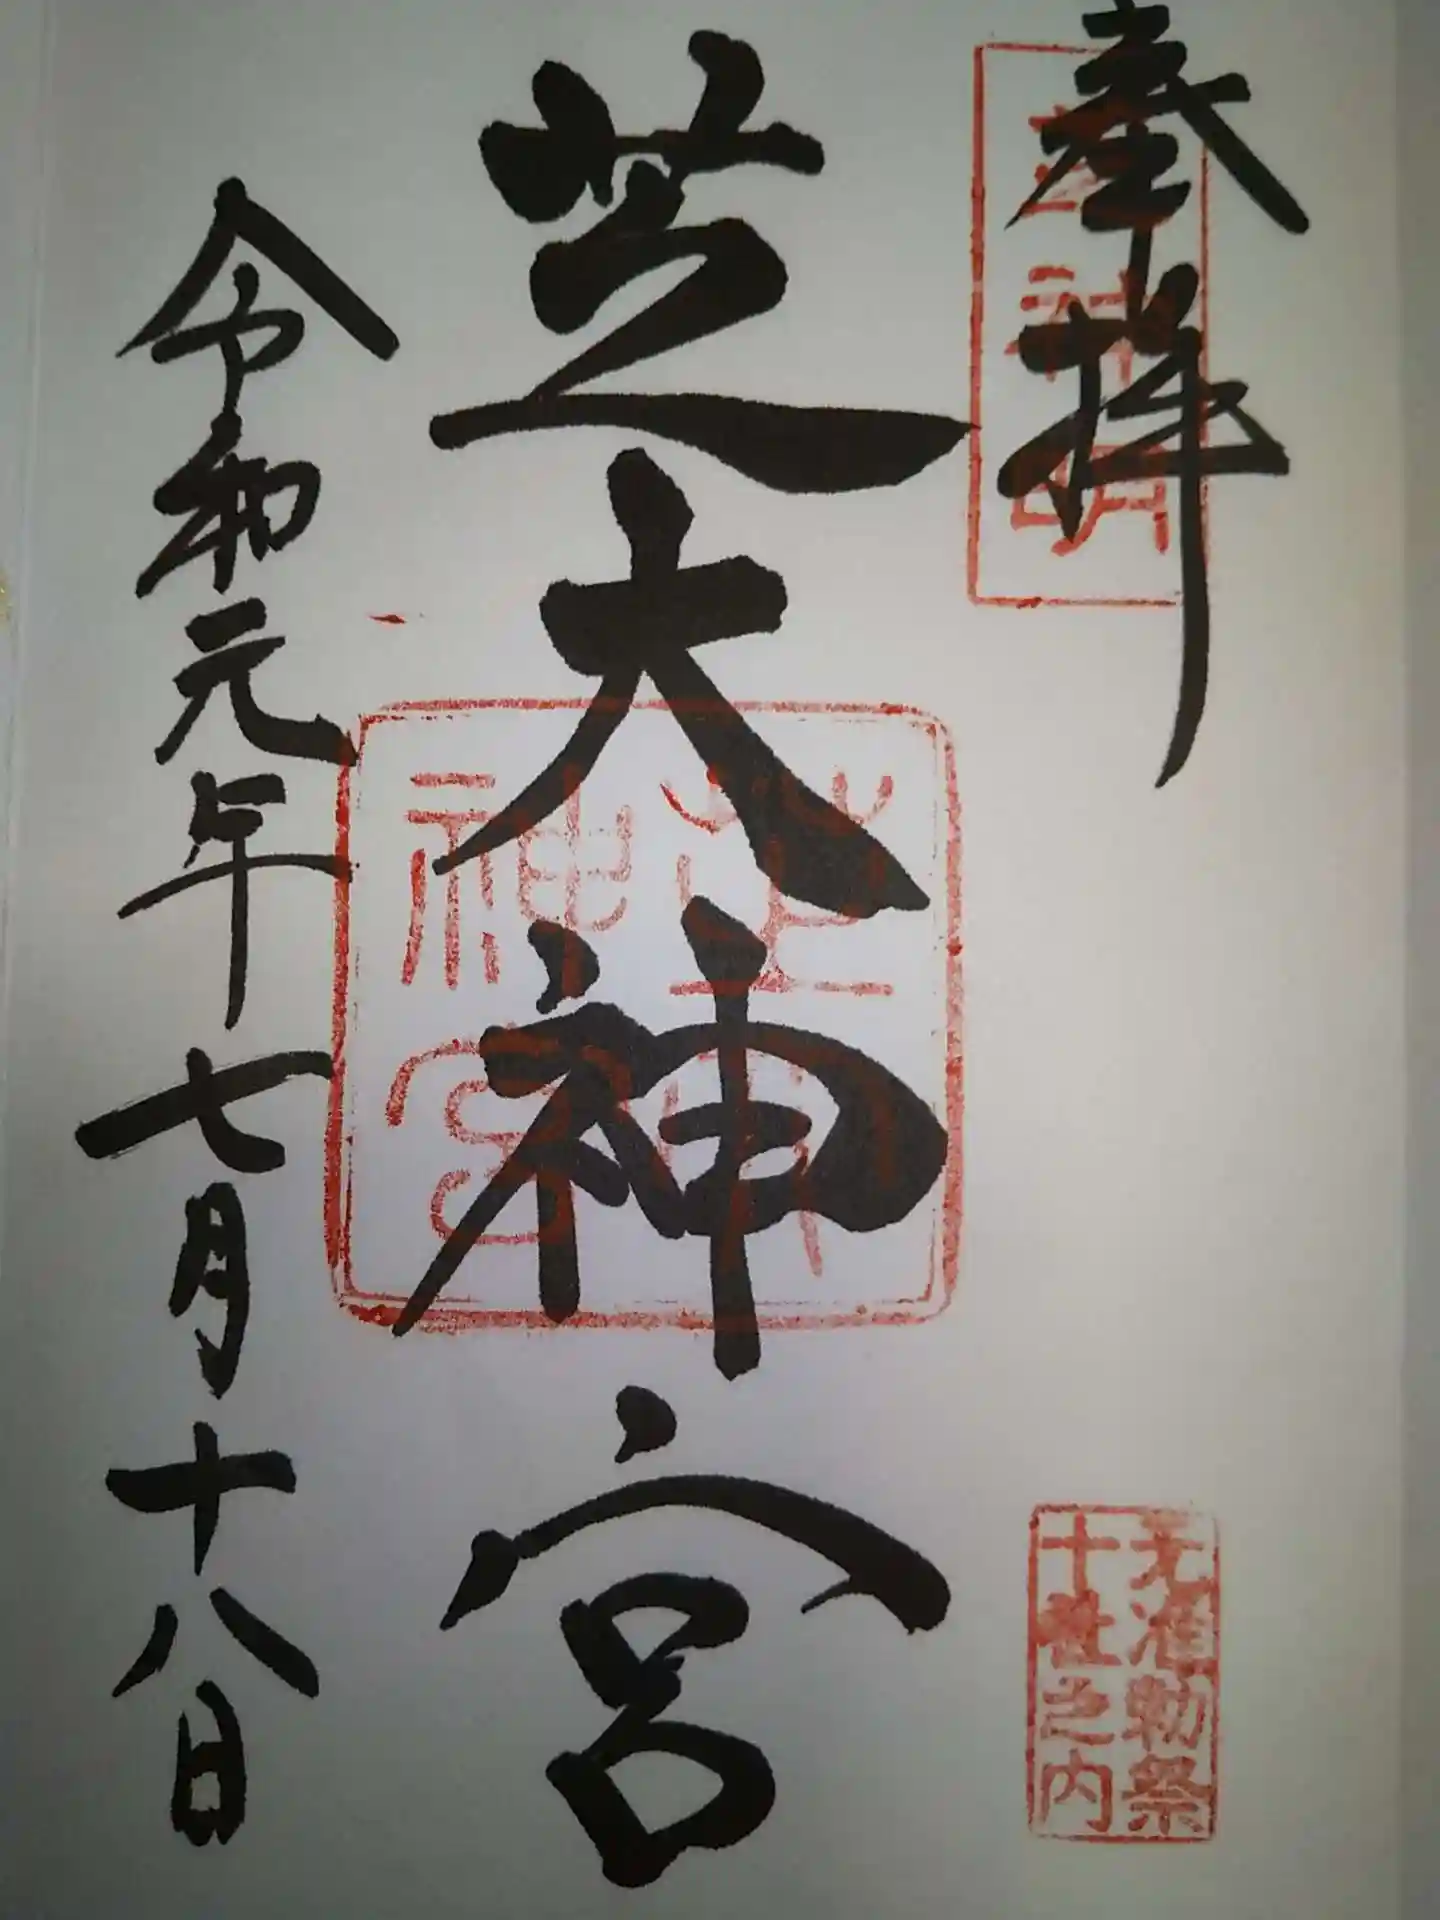 奉拝
芝神明
元准勅祭
十社之内
芝大神宮
芝大
神宮
令和元年七月十八日